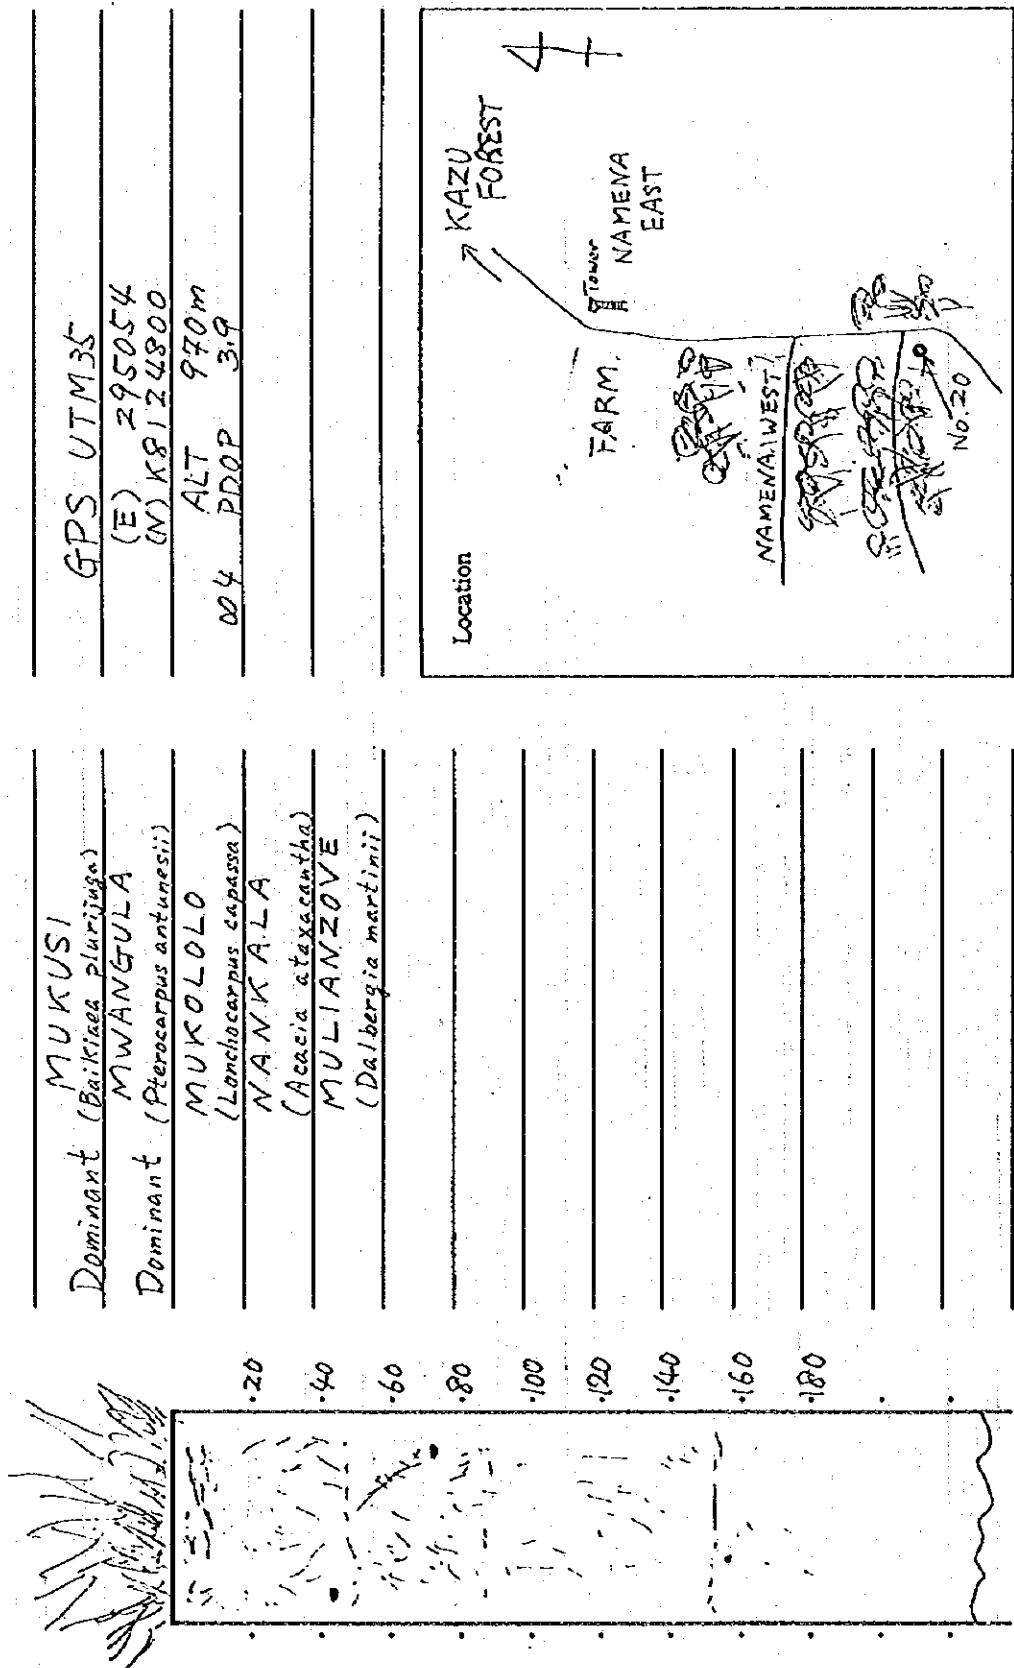 MUKUSI
Dominant (Baikiaea plurijuga)
MWANGULA
Dominant (Pterocarpus antunesii)
MUKOLOLO
(Lonchocarpus capassa)
NANKALA
(Acacia ataxacantha)
MULIANZOVE
(Dalbergia martinii)
GPS UTM35
(E) 295054
(N) K8124800
ALT 970m
004 PDOP 3.9
Location
KAZU
FOREST
Tower
NAMENA
EAST
FARM.
NAMENA WEST
No.20
20
40
60
80
100
120
140
160
180